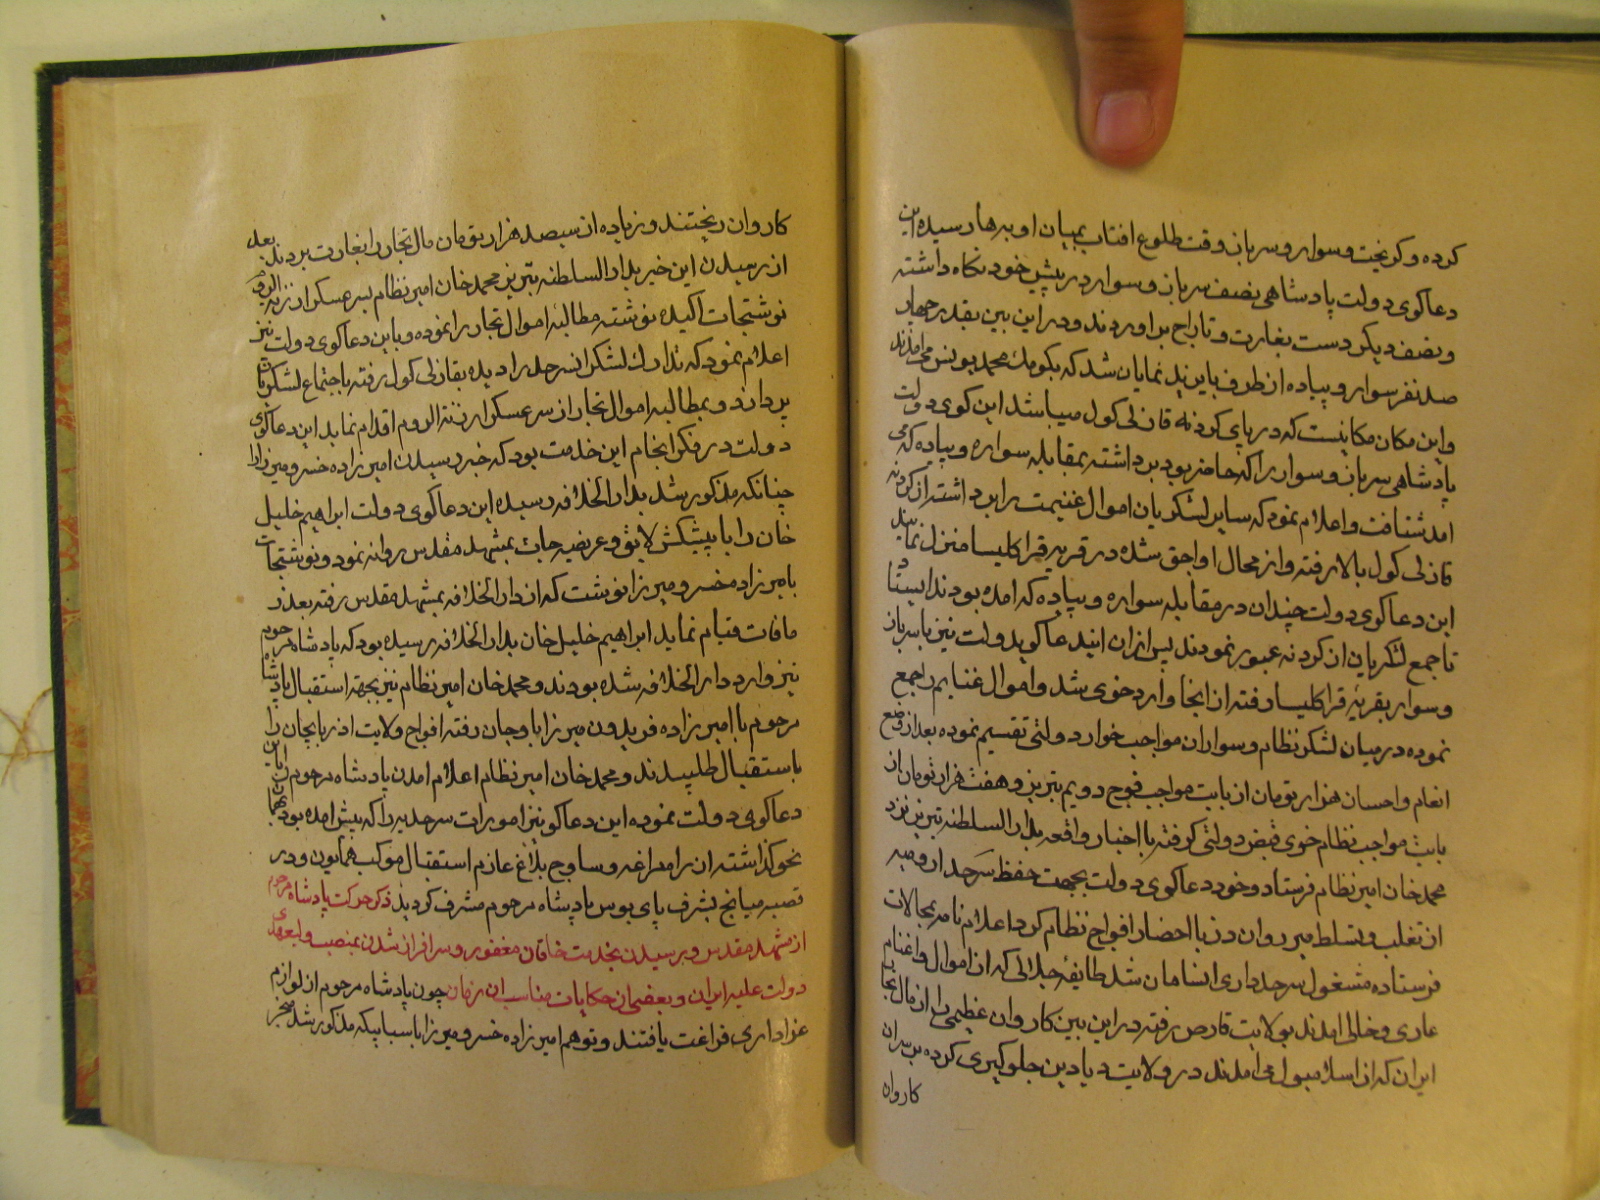 کرده و کریخت و سوار و سرباز وقت طلوع افتاب بمیان او به ها رسیده این
دعاکوی دولت پادشاهی نصف سرباز و سوار در پیش خود نکاه داشته
و نصف دیکر دست بغارت و تاراج براوردند و در این بین بقدر چهار
صد نفر سوار و پیاده از طرف بایزید نمایان شد که بکومك محمد یونس می امدند
و این مکان مکانیست که در پای کردنه قازلی کول میباشد این کوی دولت
پادشاهی سرباز و سوار را که حاضر بود برداشته بمقابله سواره و پیاده که می
امد شتافت و اعلام نمود که سایر لشکریان اموال غنیمت را برداشته از کردنه
قازلی کول بالا رفته و از محال اواجق شده در قریه قراکلیسا منزل نمایند
این دعاکوی دولت چندان در مقابله سواره و پیاده که امده بودند ایستاد
تا جمع لشکریان از کردنه عبور نمودند پس از ان ایندعاکوید ولت نیز با سرباز
و سوار بقریه قراکلیسا رفته از انجا وارد خوی شد و اموال غنایم را جمع
نموده در میان لشکر نظام و سواران مواجب خوار دولتی تقسیم نموده بعد از وضع
انعام و احسان هزار تومان از بابت مواجب فوج دویم تبریز و هفت هزار تومان از
بابت مواجب نظام خوی قبض دولتی کرفته با اخبار واقعه بدار السلطنه تبریز نزد
محمد خان امیر نظام فرستاد و خود دعاکوی دولت بجهت حفظ سرحد ارومیه
از تغلب و تسلط میر روان دز با احضار افواج نظام کرد اعلام نامه بمحالات
فرستاده مشغول سرحد داری انسامان شد طائفه جلالی که از اموال و اغنام
عاری و خالی امدند بولایت قارص رفته در این بین کاروان عظیمی را از مال تجار
ایران که از اسلامبول می امدند در ولایت دیادین جلوکیری کرده بر سران
کاروان
کاروان ریختند و زیاده از سیصد هزار تومان مال تجار را بغارت بردند بعد
از رسیدن این خبر بدار السلطنه تبریز محمد خان امیر نظام بسر عسکر ارزنة الروم
نوشتجات اکیده نوشته مطالبهٔ اموال تجار را نموده و باین دعاکوی دولت نیز
اعلام نمود که تدارك لشکر انسرحد را دیده بقازلی کول رفته باجتماع لشکریان
پردازد و بمطالبه اموال تجار از سر عسکر ارزنة الروم اقدام نماید این دعاکوی
دولت در فکر انجام این خدمت بود که خبر رسیدن امیرزاده خسرو میرزا را
چنانکه مذکور شد بدار الخلافه رسیده این دعاکوی دولت ابراهیم خلیل
خان را با پیشکش لایق و عریضه جات بمشهد مقدس روانه نمود و نوشتجات
بامیرزاده خسرو میرزا نوشت که از دار الخلافه بمشهد مقدس رفته بعذر
مافات قیام نماید ابراهیم خلیل خان بدار الخلافه رسیده بود که پادشاه مرحوم
نیز وارد دار الخلافه شده بودند و محمد خان امیر نظام نیز بجهة استقبال پادشاه
مرحوم با امیرزاده فریدون میرزا باوجان رفته افواج ولایت اذربایجان را
باستقبال طلبیدند و محمد خان امیر نظام اعلام امدن پادشاه مرحوم را باین
دعاکوی دولت نموده این دعاکو نیز امورات سرحدیه را که پیش امده بود بهمان
نحو کذاشته از راه مراغه و ساوج بلاغ عازم استقبال موکب همایون و در
قصبه میانج بشرف پای بوس پادشاه مرحوم مشرف کردید ذکر حرکت پادشاه مرحوم
از مشهد مقدس و برسیدن بخدمت خاقان مغفور و سرافراز شدن بمنصب ولیعهدی
دولت علیه ایران و بعضی از حکایات مناسب ان زمان چون پادشاه مرحوم از لوازم
عزاداری فراغت یافتند و توهم امیرزاده خسرو میرزا باسبابیکه مذکور شد منجر